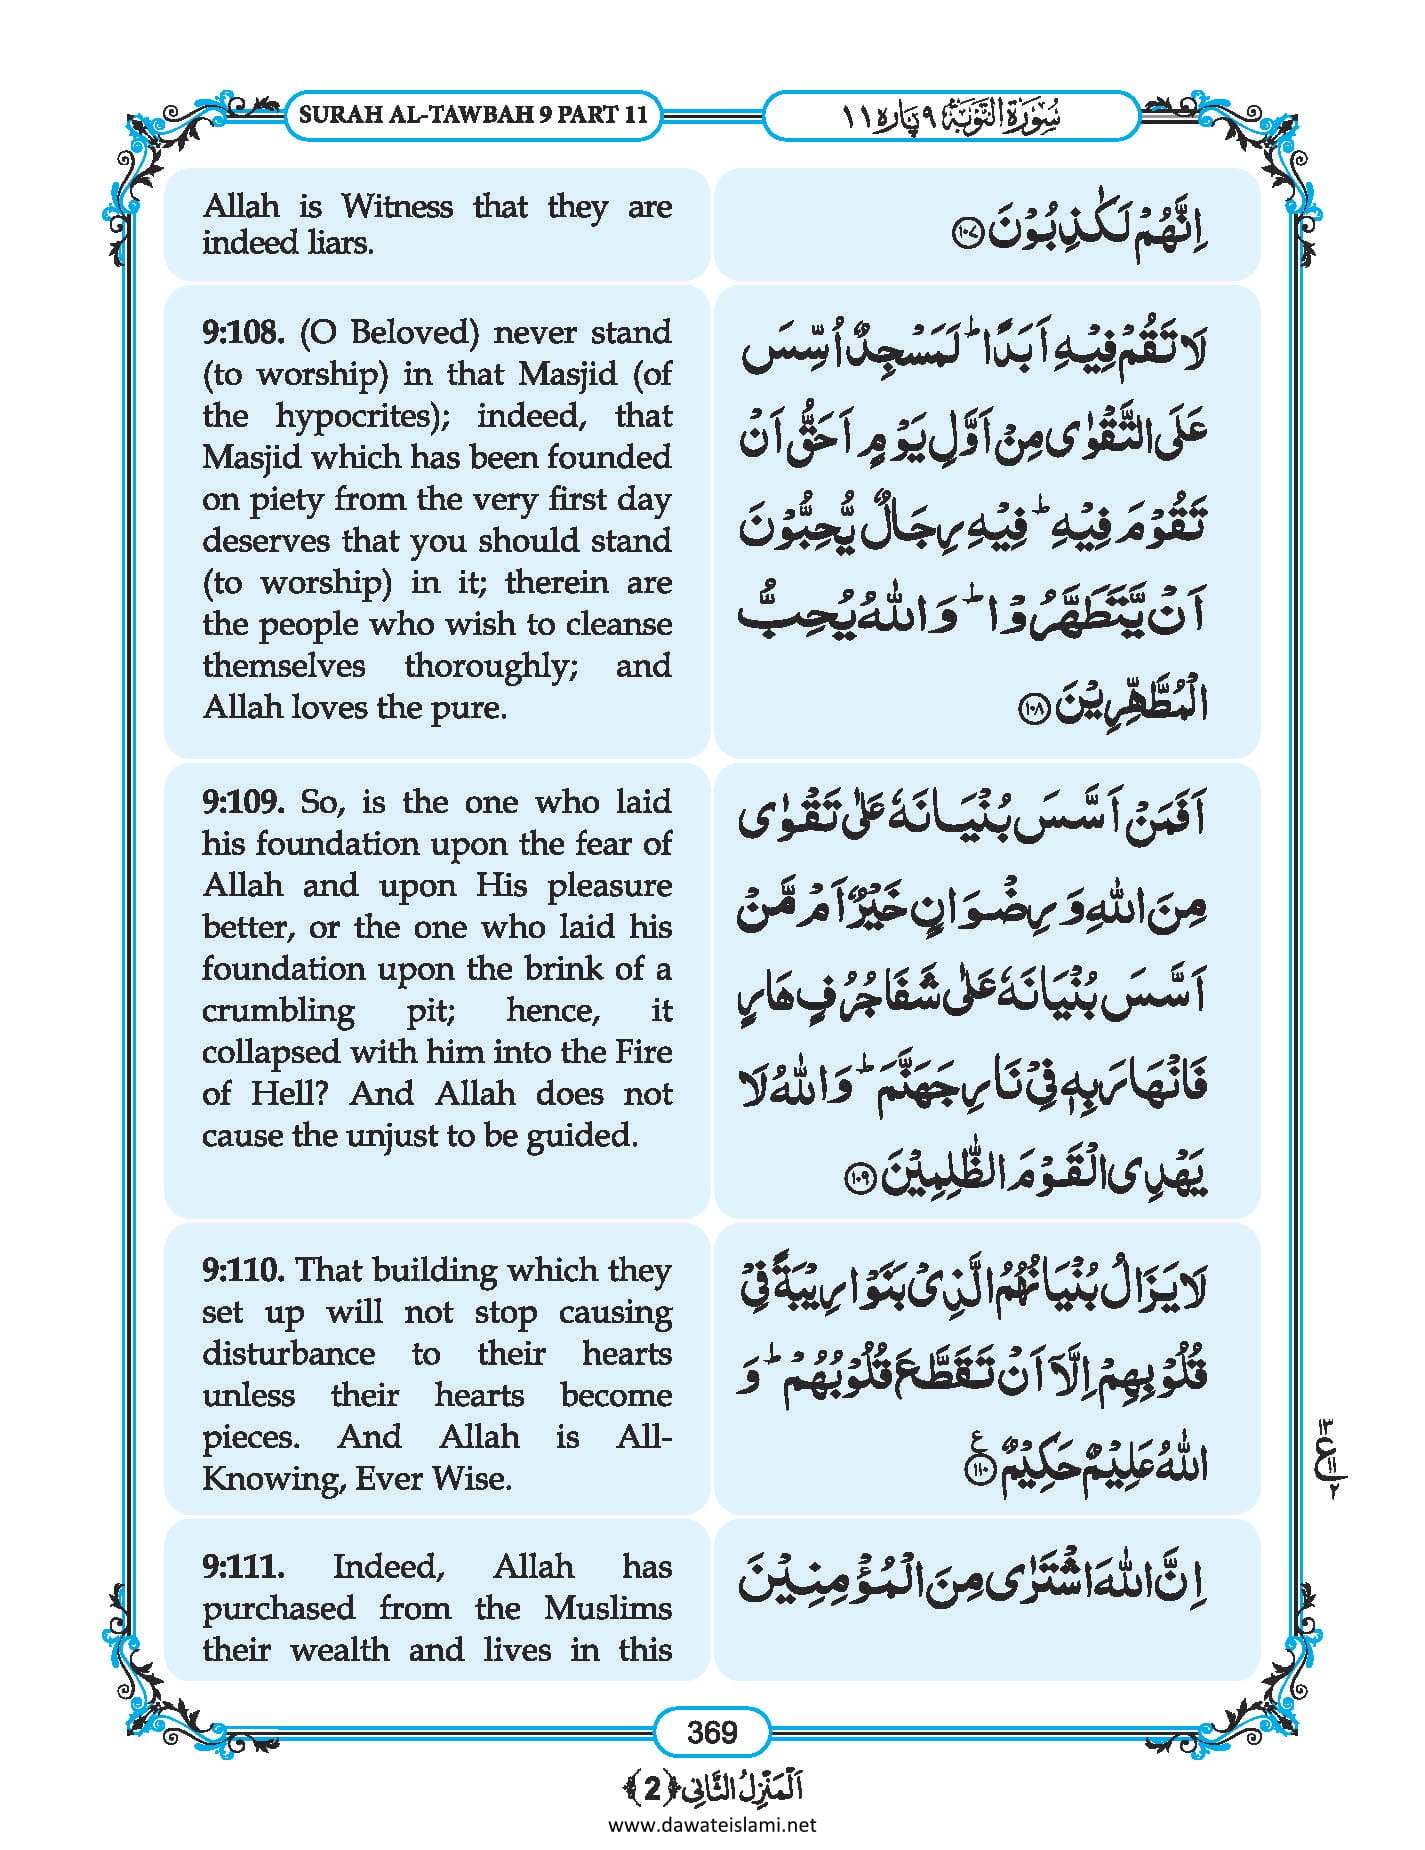 SURAH AL-TAWBAH 9 PART 11
سُوْرَةُ التَّوْبَة ٩ پَارہ ١١
Allah is Witness that they are
indeed liars.
اِنَّهُمْ لَكٰذِبُوْنَ ﴿١٠٧﴾
9:108. (O Beloved) never stand
(to worship) in that Masjid (of
the hypocrites); indeed, that
Masjid which has been founded
on piety from the very first day
deserves that you should stand
(to worship) in it; therein are
the people who wish to cleanse
themselves thoroughly; and
Allah loves the pure.
لَا تَقُمْ فِيْهِ اَبَدًا ؕ لَمَسْجِدٌ اُسِّسَ
عَلَى التَّقْوٰى مِنْ اَوَّلِ يَوْمٍ اَحَقُّ اَنْ
تَقُوْمَ فِيْهِ ؕ فِيْهِ رِجَالٌ يُّحِبُّوْنَ
اَنْ يَّتَطَهَّرُوْا ؕ وَ اللّٰهُ يُحِبُّ
الْمُطَّهِّرِيْنَ ﴿١٠٨﴾
9:109. So, is the one who laid
his foundation upon the fear of
Allah and upon His pleasure
better, or the one who laid his
foundation upon the brink of a
crumbling pit; hence, it
collapsed with him into the Fire
of Hell? And Allah does not
cause the unjust to be guided.
اَفَمَنْ اَسَّسَ بُنْيَانَهٗ عَلٰى تَقْوٰى
مِنَ اللّٰهِ وَ رِضْوَانٍ خَيْرٌ اَمْ مَّنْ
اَسَّسَ بُنْيَانَهٗ عَلٰى شَفَا جُرُفٍ هَارٍ
فَانْهَارَ بِهٖ فِيْ نَارِ جَهَنَّمَ ؕ وَ اللّٰهُ لَا
يَهْدِى الْقَوْمَ الظّٰلِمِيْنَ ﴿١٠٩﴾
9:110. That building which they
set up will not stop causing
disturbance to their hearts
unless their hearts become
pieces. And Allah is All-
Knowing, Ever Wise.
لَا يَزَالُ بُنْيَانُهُمُ الَّذِيْ بَنَوْا رِيْبَةً فِيْ
قُلُوْبِهِمْ اِلَّاۤ اَنْ تَقَطَّعَ قُلُوْبُهُمْ ؕ وَ
اللّٰهُ عَلِيْمٌ حَكِيْمٌ ﴿١١٠﴾ ع
١٣
ع ١١
٢
9:111. Indeed, Allah has
purchased from the Muslims
their wealth and lives in this
اِنَّ اللّٰهَ اشْتَرٰى مِنَ الْمُؤْمِنِيْنَ
369
اَلْمَنْزِلُ الثَّانِي ﴿2﴾
www.dawateislami.net